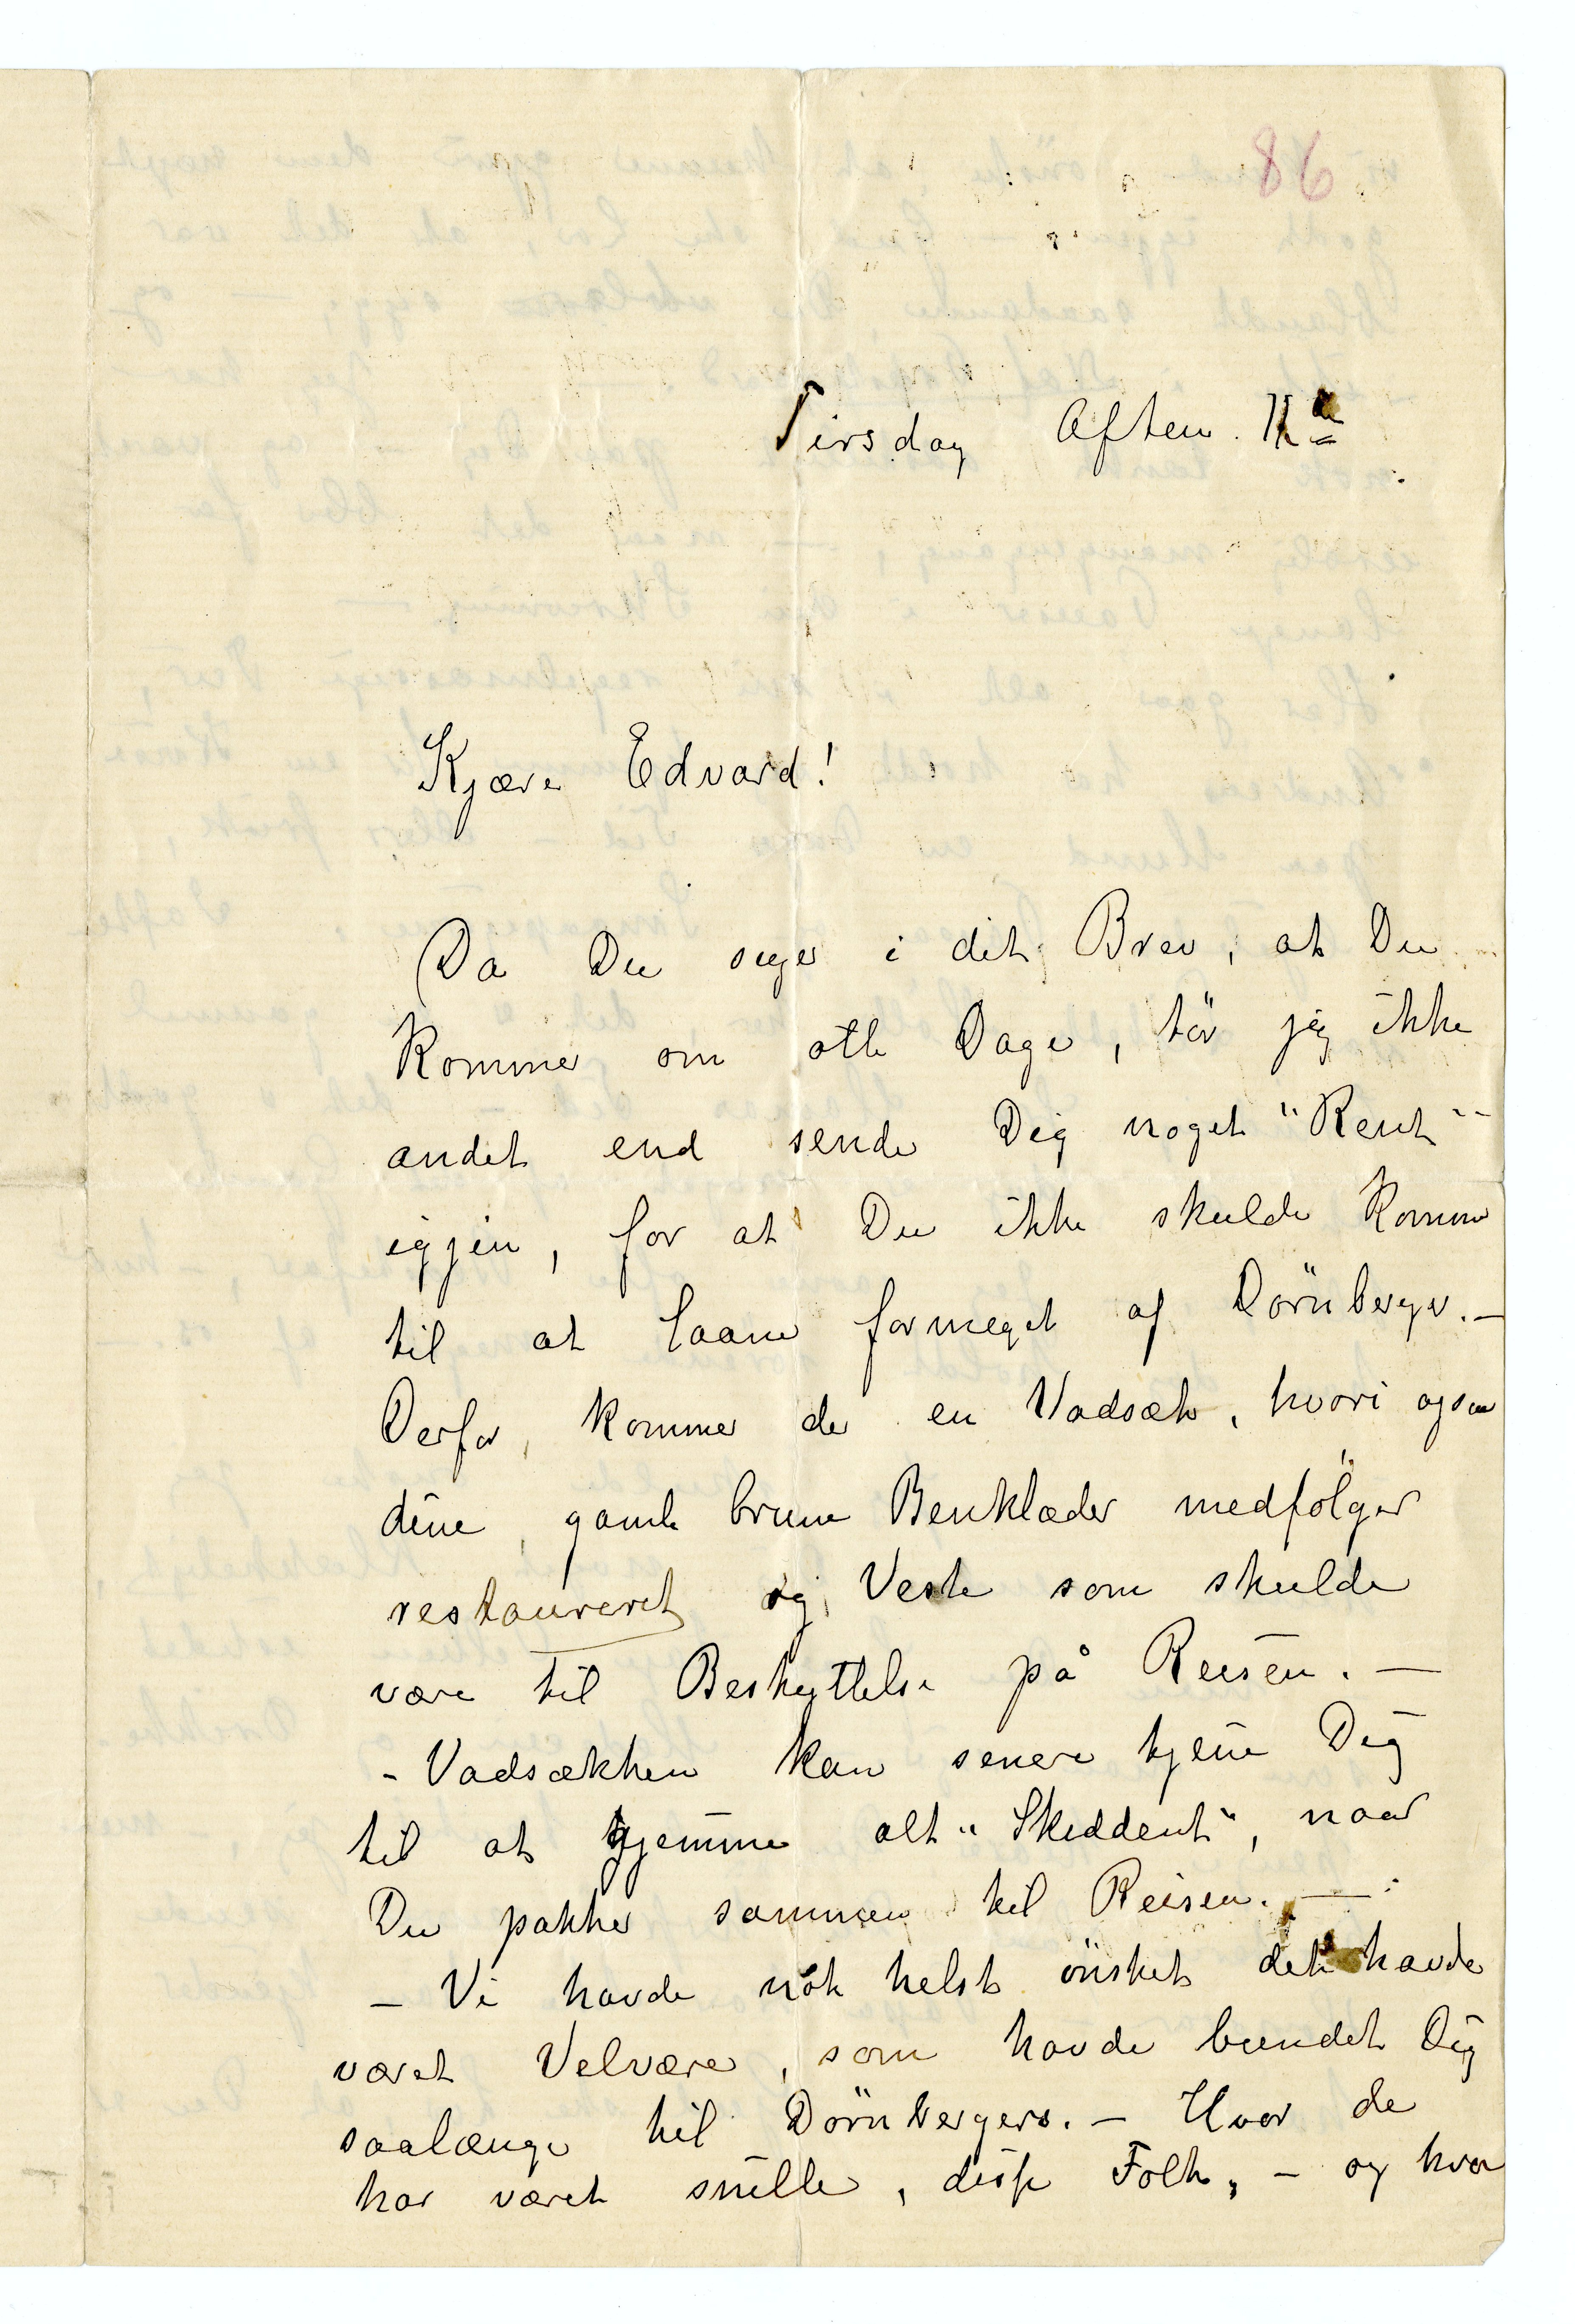 86
Tirsdag Aften.
Kjære Edvard!
Da Du siger i dit Brev, at Du
kommer om otte Dage, tör jeg ikke
andet end sende Dig noget "Rent"
igjen, for at Du ikke skulde komme
til at laane formeget af Dörnberger. –
Derfor kommer der en Vadsæk, hvori ogsaa
dine gamle brune Benklæder medfölger
restaureret og Veste som skulde
være til Beskyttelse på Reisen. –
- Vadsækken kan senere tjene Dig
til at gjemme alt "Skiddent", naar
Du pakker sammen til Reisen. –
– Vi havde nok helst önsket det havde
været Velvære, som havde bundet Dig
saalænge til Dörnbergers. – Hvor de
har været snille, disse Folk, – og hvor